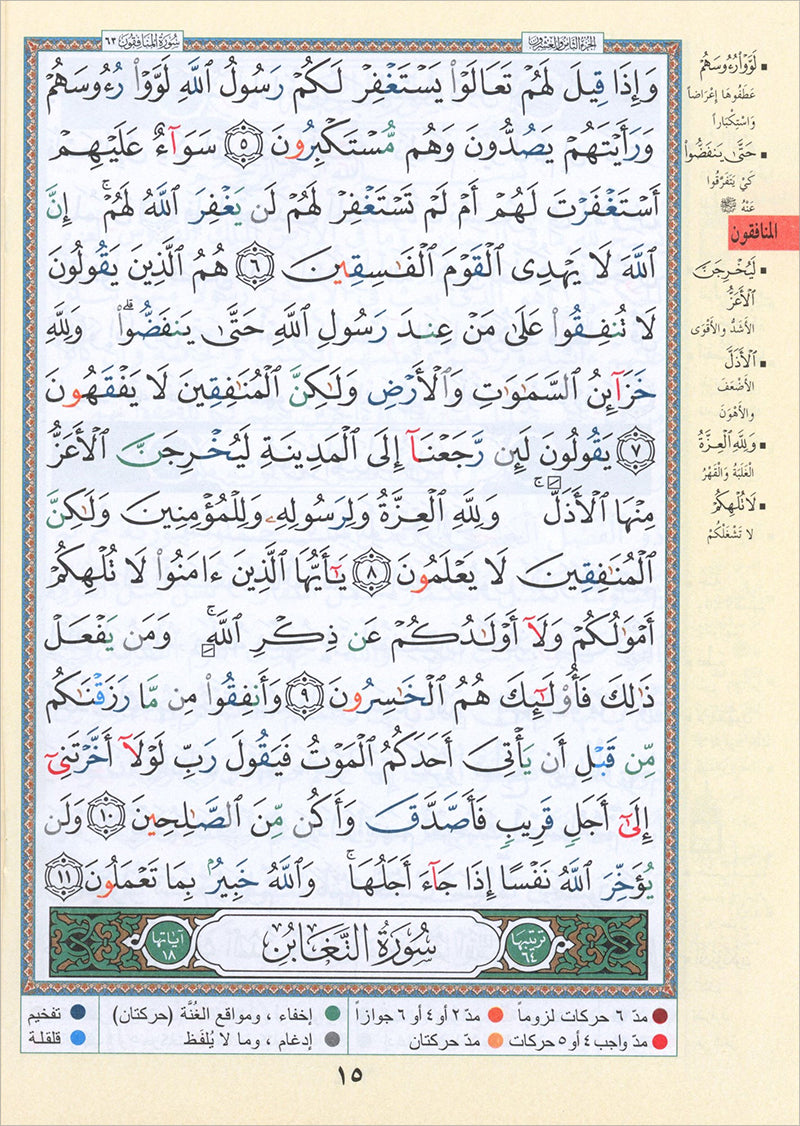 سُورَةُ المُنَافِقُونَ ٦٣
الجُزءُ الثَّامِن وَالعِشْرُون
وَإِذَا قِيلَ لَهُمۡ تَعَالَوۡاْ يَسۡتَغۡفِرۡ لَكُمۡ رَسُولُ ٱللَّهِ لَوَّوۡاْ رُءُوسَهُمۡ
وَرَأَيۡتَهُمۡ يَصُدُّونَ وَهُم مُّسۡتَكۡبِرُونَ ٥ سَوَآءٌ عَلَيۡهِمۡ
أَسۡتَغۡفَرۡتَ لَهُمۡ أَمۡ لَمۡ تَسۡتَغۡفِرۡ لَهُمۡ لَن يَغۡفِرَ ٱللَّهُ لَهُمۡۚ إِنَّ
ٱللَّهَ لَا يَهۡدِى ٱلۡقَوۡمَ ٱلۡفَٰسِقِينَ ٦ هُمُ ٱلَّذِينَ يَقُولُونَ
لَا تُنفِقُواْ عَلَىٰ مَنۡ عِندَ رَسُولِ ٱللَّهِ حَتَّىٰ يَنفَضُّواْۗ وَلِلَّهِ
خَزَآئِنُ ٱلسَّمَٰوَٰتِ وَٱلۡأَرۡضِ وَلَٰكِنَّ ٱلۡمُنَٰفِقِينَ لَا يَفۡقَهُونَ
٧ يَقُولُونَ لَئِن رَّجَعۡنَآ إِلَى ٱلۡمَدِينَةِ لَيُخۡرِجَنَّ ٱلۡأَعَزُّ
مِنۡهَا ٱلۡأَذَلَّۚ وَلِلَّهِ ٱلۡعِزَّةُ وَلِرَسُولِهِۦ وَلِلۡمُؤۡمِنِينَ وَلَٰكِنَّ
ٱلۡمُنَٰفِقِينَ لَا يَعۡلَمُونَ ٨ يَٰٓأَيُّهَا ٱلَّذِينَ ءَامَنُواْ لَا تُلۡهِكُمۡ
أَمۡوَٰلُكُمۡ وَلَآ أَوۡلَٰدُكُمۡ عَن ذِكۡرِ ٱللَّهِۚ وَمَن يَفۡعَلۡ
ذَٰلِكَ فَأُوْلَٰٓئِكَ هُمُ ٱلۡخَٰسِرُونَ ٩ وَأَنفِقُواْ مِن مَّا رَزَقۡنَٰكُم
مِّن قَبۡلِ أَن يَأۡتِىَ أَحَدَكُمُ ٱلۡمَوۡتُ فَيَقُولَ رَبِّ لَوۡلَآ أَخَّرۡتَنِىٓ
إِلَىٰٓ أَجَلٍ قَرِيبٍ فَأَصَّدَّقَ وَأَكُن مِّنَ ٱلصَّٰلِحِينَ ١٠ وَلَن
يُؤَخِّرَ ٱللَّهُ نَفۡسًا إِذَا جَآءَ أَجَلُهَاۚ وَٱللَّهُ خَبِيرُۢ بِمَا تَعۡمَلُونَ ١١
ترتيبها ٦٤
سُورَةُ التَّغَابُنِ
آياتها ١٨
لَوَّوۡاْ رُءُوسَهُمۡ
عَطَفُوهَا إِعْرَاضاً
وَاسْتِكْبَاراً
حَتَّىٰ يَنفَضُّواْ
كَيْ يَتَفَرَّقُوا
عَنْهُ ﷺ
المنافقون
لَيُخۡرِجَنَّ
ٱلۡأَعَزُّ
الأَشَدُّ والأَقْوَى
ٱلۡأَذَلَّ
الأَضْعَفَ
والأَهْوَنَ
وَلِلَّهِ ٱلۡعِزَّةُ
الْغَلَبَةُ وَالْقَهْرُ
لَا تُلۡهِكُمۡ
لا تَشْغَلْكُمْ
مدّ ٦ حركات لزوماً
مدّ ٢ أو ٤ أو ٦ جوازاً
إخفاء ، ومواقع الغُنَّة (حركتان)
تفخيم
مدّ واجب ٤ أو ٥ حركات
مدّ حركتان
إدغام ، وما لا يُلفَظ
قلقلة
١٥